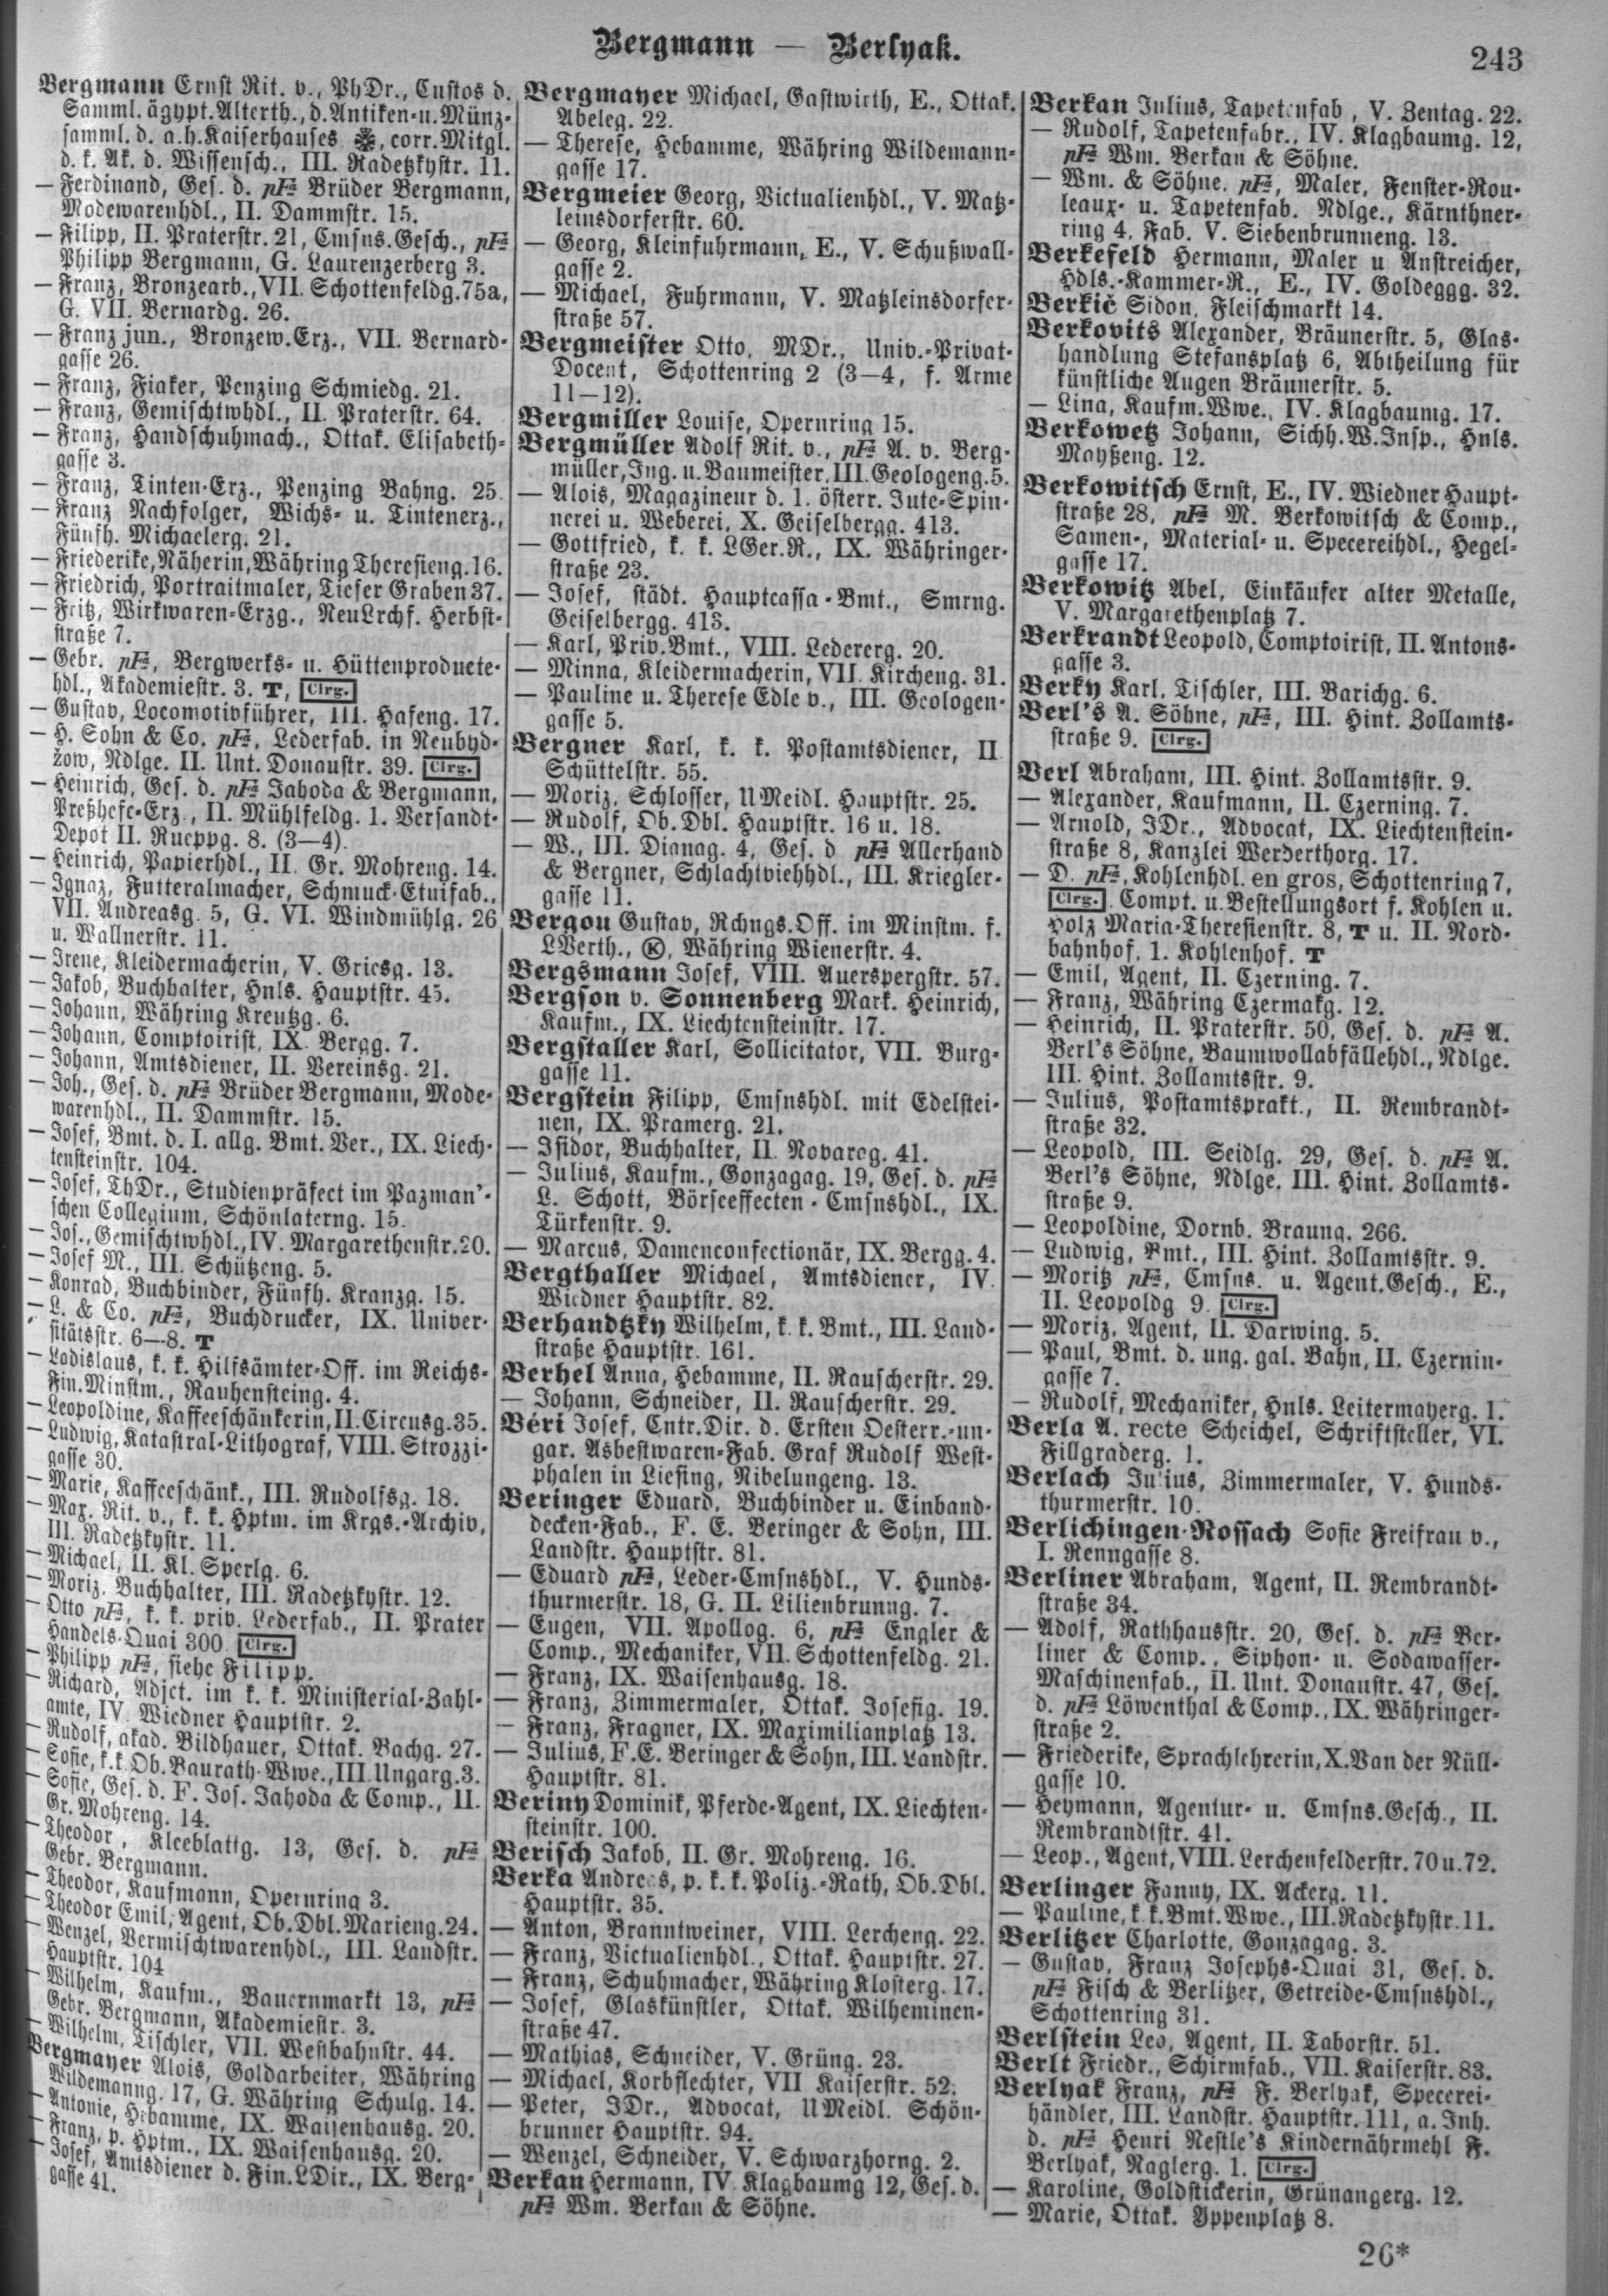 Bergmann — Berlyak.
243
Bergmann Ernst Rit. v., PhDr., Custos d.
Samml. ägypt. Alterth., d. Antiken- u. Münz-
samml. d. a. h. Kaiserhauses, corr. Mitgl.
d. k. Ak. d. Wissensch., III. Radetzkystr. 11.
— Ferdinand, Ges. d. pFa Brüder Bergmann,
Modewarenhdl., II. Dammstr. 15.
— Filipp, II. Praterstr. 21, Cmsns. Gesch., pFa
Philipp Bergmann, G. Laurenzerberg 3.
— Franz, Bronzearb., VII. Schottenfeldg. 75a,
G. VII. Bernardg. 26.
— Franz jun., Bronzew. Erz., VII. Bernard-
gasse 26.
— Franz, Fiaker, Penzing Schmiedg. 21.
— Franz, Gemischtwhdl., II. Praterstr. 64.
— Franz, Handschuhmach., Ottak. Elisabeth-
gasse 3.
— Franz, Tinten-Erz., Penzing Bahng. 25.
— Franz Nachfolger, Wichs- u. Tintenerz.,
Fünfh. Michaelerg. 21.
— Friederike, Näherin, Währing Theresieng. 16.
— Friedrich, Portraitmaler, Tiefer Graben 37.
— Fritz, Wirkwaren-Erzg., NeuLrchf. Herbst-
straße 7.
— Gebr. pFa, Bergwerks- u. Hüttenproducte-
hdl., Akademiestr. 3. T, Clrg.
— Gustav, Locomotivführer, III. Hafeng. 17.
— H. Sohn & Co. pFa, Lederfab. in Neubyd-
žow, Ndlge. II. Unt. Donaustr. 39. Clrg.
— Heinrich, Ges. d. pFa Jahoda & Bergmann,
Preßhefe-Erz., II. Mühlfeldg. 1. Versandt-
Depot II. Rueppg. 8. (3—4).
— Heinrich, Papierhdl., II. Gr. Mohreng. 14.
— Ignaz, Futteralmacher, Schmuck-Etuifab.,
VII. Andreasg. 5, G. VI. Windmühlg. 26
u. Wallnerstr. 11.
— Irene, Kleidermacherin, V. Griesg. 13.
— Jakob, Buchhalter, Hnls. Hauptstr. 45.
— Johann, Währing Kreutzg. 6.
— Johann, Comptoirist, IX. Bergg. 7.
— Johann, Amtsdiener, II. Vereinsg. 21.
— Joh., Ges. d. pFa Brüder Bergmann, Mode-
warenhdl., II. Dammstr. 15.
— Josef, Bmt. d. I. allg. Bmt. Ver., IX. Liech-
tensteinstr. 104.
— Josef, ThDr., Studienpräfect im Pazman'-
schen Collegium, Schönlaterng. 15.
— Jos., Gemischtwhdl., IV. Margarethenstr. 20.
— Josef M., III. Schützeng. 5.
— Konrad, Buchbinder, Fünfh. Kranzg. 15.
— L. & Co. pFa, Buchdrucker, IX. Univer-
sitätsstr. 6—8. T
— Ladislaus, k. k. Hilfsämter-Off. im Reichs-
Fin. Minstm., Rauhensteing. 4.
— Leopoldine, Kaffeeschänkerin, II. Circusg. 35.
— Ludwig, Katastral-Lithograf, VIII. Strozzi-
gasse 30.
— Marie, Kaffeeschänk., III. Rudolfsg. 18.
— Max. Rit. v., k. k. Hptm. im Krgs.-Archiv,
III. Radetzkystr. 11.
— Michael, II. Kl. Sperlg. 6.
— Moriz. Buchhalter, III. Radetzkystr. 12.
— Otto pFa, k. k. priv. Lederfab., II. Prater
Handels-Quai 300. Clrg.
— Philipp pFa, siehe Filipp.
— Richard, Adjct. im k. k. Ministerial-Zahl-
amte, IV. Wiedner Hauptstr. 2.
— Rudolf, akad. Bildhauer, Ottak. Bachg. 27.
— Sofie, k. k. Ob. Baurath-Wwe., III. Ungarg. 3.
— Sofie, Ges. d. F. Jos. Jahoda & Comp., II.
Gr. Mohreng. 14.
— Theodor, Kleeblattg. 13, Ges. d. pFa
Gebr. Bergmann.
— Theodor, Kaufmann, Opernring 3.
— Theodor Emil, Agent, Ob. Dbl. Marieng. 24.
— Wenzel, Vermischtwarenhdl., III. Landstr.
Hauptstr. 104
— Wilhelm, Kaufm., Bauernmarkt 13, pFa
Gebr. Bergmann, Akademiestr. 3.
— Wilhelm, Tischler, VII. Westbahnstr. 44.
Bergmayer Alois, Goldarbeiter, Währing
Wildemanng. 17, G. Währing Schulg. 14.
— Antonie, Hebamme, IX. Waisenhausg. 20.
— Franz, p. Hptm., IX. Waisenhausg. 20.
— Josef, Amtsdiener d. Fin. LDir., IX. Berg-
gasse 41.
Bergmayer Michael, Gastwirth, E., Ottak.
Abeleg. 22.
— Therese, Hebamme, Währing Wildemann-
gasse 17.
Bergmeier Georg, Victualienhdl., V. Matz-
leinsdorferstr. 60.
— Georg, Kleinfuhrmann, E., V. Schußwall-
gasse 2.
— Michael, Fuhrmann, V. Matzleinsdorfer-
straße 57.
Bergmeister Otto, MDr., Univ.-Privat-
Docent, Schottenring 2 (3—4, f. Arme
11—12).
Bergmiller Louise, Opernring 15.
Bergmüller Adolf Rit. v., pFa A. v. Berg-
müller, Ing. u. Baumeister, III. Geologeng. 5.
— Alois, Magazineur d. 1. österr. Jute-Spin-
nerei u. Weberei, X. Geiselbergg. 413.
— Gottfried, k. k. LGer.R., IX. Währinger-
straße 23.
— Josef, städt. Hauptcassa-Bmt., Smrng.
Geiselbergg. 413.
— Karl, Priv. Bmt., VIII. Ledererg. 20.
— Minna, Kleidermacherin, VII. Kircheng. 31.
— Pauline u. Therese Edle v., III. Geologen-
gasse 5.
Bergner Karl, k. k. Postamtsdiener, II
Schüttelstr. 55.
— Moriz, Schlosser, UMeidl. Hauptstr. 25.
— Rudolf, Ob. Dbl. Hauptstr. 16 u. 18.
— W., III. Dianag. 4, Ges. d pFa Allerhand
& Bergner, Schlachtviehhdl., III. Kriegler-
gasse 11.
Bergou Gustav, Rchngs. Off. im Minstm. f.
LVerth., Ⓚ, Währing Wienerstr. 4.
Bergsmann Josef, VIII. Auerspergstr. 57.
Bergson v. Sonnenberg Mark. Heinrich,
Kaufm., IX. Liechtensteinstr. 17.
Bergstaller Karl, Sollicitator, VII. Burg-
gasse 11.
Bergstein Filipp, Cmsnshdl. mit Edelstei-
nen, IX. Pramerg. 21.
— Isidor, Buchhalter, II. Novarag. 41.
— Julius, Kaufm., Gonzagag. 19, Ges. d. pFa
L. Schott, Börseeffecten-Cmsnshdl., IX.
Türkenstr. 9.
— Marcus, Damenconfectionär, IX. Bergg. 4.
Bergthaller Michael, Amtsdiener, IV.
Wiedner Hauptstr. 82.
Berhandtzky Wilhelm, k. k. Bmt., III. Land-
straße Hauptstr. 161.
Berhel Anna, Hebamme, II. Rauscherstr. 29.
— Johann, Schneider, II. Rauscherstr. 29.
Béri Josef, Cntr. Dir. d. Ersten Oesterr.-un-
gar. Asbestwaren-Fab. Graf Rudolf West-
phalen in Liesing, Nibelungeng. 13.
Beringer Eduard, Buchbinder u. Einband-
decken-Fab., F. E. Beringer & Sohn, III.
Landstr. Hauptstr. 81.
— Eduard pFa, Leder-Cmsnshdl., V. Hunds-
thurmerstr. 18, G. II. Lilienbrunng. 7.
— Eugen, VII. Apollog. 6, pFa Engler &
Comp., Mechaniker, VII. Schottenfeldg. 21.
— Franz, IX. Waisenhausg. 18.
— Franz, Zimmermaler, Ottak. Josefig. 19.
— Franz, Fragner, IX. Maximilianplatz 13.
— Julius, F. E. Beringer & Sohn, III. Landstr.
Hauptstr. 81.
Beriny Dominik, Pferde-Agent, IX. Liechten-
steinstr. 100.
Berisch Jakob, II. Gr. Mohreng. 16.
Berka Andreas, p. k. k. Poliz.-Rath, Ob. Dbl.
Hauptstr. 35.
— Anton, Branntweiner, VIII. Lercheng. 22.
— Franz, Victualienhdl., Ottak. Hauptstr. 27.
— Franz, Schuhmacher, Währing Klosterg. 17.
— Josef, Glaskünstler, Ottak. Wilheminen-
straße 47.
— Mathias, Schneider, V. Grüng. 23.
— Michael, Korbflechter, VII Kaiserstr. 52.
— Peter, JDr., Advocat, UMeidl. Schön-
brunner Hauptstr. 94.
— Wenzel, Schneider, V. Schwarzhorng. 2.
Berkan Hermann, IV. Klagbaumg 12, Ges. d.
pFa Wm. Berkan & Söhne.
Berkan Julius, Tapetenfab, V. Zentag. 22.
— Rudolf, Tapetenfabr., IV. Klagbaumg. 12,
pFa Wm. Berkan & Söhne.
— Wm. & Söhne, pFa, Maler, Fenster-Rou-
leaux- u. Tapetenfab. Ndlge., Kärnthner-
ring 4, Fab. V. Siebenbrunneng. 13.
Berkefeld Hermann, Maler u Anstreicher,
Hdls.-Kammer-R., E., IV. Goldeggg. 32.
Berkič Sidon, Fleischmarkt 14.
Berkovits Alexander, Bräunerstr. 5, Glas-
handlung Stefansplatz 6, Abtheilung für
künstliche Augen Bräunerstr. 5.
— Lina, Kaufm. Wwe., IV. Klagbaumg. 17.
Berkowetz Johann, Sichh. W. Insp., Hnls.
Mayßeng. 12.
Berkowitsch Ernst, E., IV. Wiedner Haupt-
straße 28, pFa M. Berkowitsch & Comp.,
Samen-, Material- u. Specereihdl., Hegel-
gasse 17.
Berkowitz Abel, Einkäufer alter Metalle,
V. Margarethenplatz 7.
Berkrandt Leopold, Comptoirist, II. Antons-
gasse 3.
Berky Karl, Tischler, III. Barichg. 6.
Berl's A. Söhne, pFa, III. Hint. Zollamts-
straße 9. Clrg.
Berl Abraham, III. Hint. Zollamtsstr. 9.
— Alexander, Kaufmann, II. Czerning. 7.
— Arnold, JDr., Advocat, IX. Liechtenstein-
straße 8, Kanzlei Werderthorg. 17.
— D. pFa, Kohlenhdl. en gros, Schottenring 7,
Clrg. Compt. u. Bestellungsort f. Kohlen u.
Holz Maria-Theresienstr. 8, T u. II. Nord-
bahnhof, 1. Kohlenhof. T
— Emil, Agent, II. Czerning. 7.
— Franz, Währing Czermakg. 12.
— Heinrich, II. Praterstr. 50, Ges. d. pFa A.
Berl's Söhne, Baumwollabfällehdl., Ndlge.
III. Hint. Zollamtsstr. 9.
— Julius, Postamtsprakt., II. Rembrandt-
straße 32.
— Leopold, III. Seidlg. 29, Ges. d. pFa A.
Berl's Söhne, Ndlge. III. Hint. Zollamts-
straße 9.
— Leopoldine, Dornb. Braung. 266.
— Ludwig, Bmt., III. Hint. Zollamtsstr. 9.
— Moritz pFa, Cmsns. u. Agent. Gesch., E.,
II. Leopoldg 9. Clrg.
— Moriz, Agent, II. Darwing. 5.
— Paul, Bmt. d. ung. gal. Bahn, II. Czernin-
gasse 7.
— Rudolf, Mechaniker, Hnls. Leitermayerg. 1.
Berla A. recte Scheichel, Schriftsteller, VI.
Fillgraderg. 1.
Berlach Julius, Zimmermaler, V. Hunds-
thurmerstr. 10.
Berlichingen-Rossach Sofie Freifrau v.,
I. Renngasse 8.
Berliner Abraham, Agent, II. Rembrandt-
straße 34.
— Adolf, Rathhausstr. 20, Ges. d. pFa Ber-
liner & Comp., Siphon- u. Sodawasser-
Maschinenfab., II. Unt. Donaustr. 47, Ges.
d. pFa Löwenthal & Comp., IX. Währinger-
straße 2.
— Friederike, Sprachlehrerin, X. Van der Nüll-
gasse 10.
— Heymann, Agentur- u. Cmsns. Gesch., II.
Rembrandtstr. 41.
— Leop., Agent, VIII. Lerchenfelderstr. 70 u. 72.
Berlinger Fanny, IX. Ackerg. 11.
— Pauline, k. k. Bmt. Wwe., III. Radetzkystr. 11.
Berlitzer Charlotte, Gonzagag. 3.
— Gustav, Franz Josephs-Quai 31, Ges. d.
pFa Fisch & Berlitzer, Getreide-Cmsnshdl.,
Schottenring 31.
Berlstein Leo, Agent, II. Taborstr. 51.
Berlt Friedr., Schirmfab., VII. Kaiserstr. 83.
Berlyak Franz, pFa F. Berlyak, Specerei-
händler, III. Landstr. Hauptstr. 111, a. Inh.
d. pFa Henri Nestle's Kindernährmehl F.
Berlyak, Naglerg. 1. Clrg.
— Karoline, Goldstickerin, Grünangerg. 12.
— Marie, Ottak. Yppenplatz 8.
26*